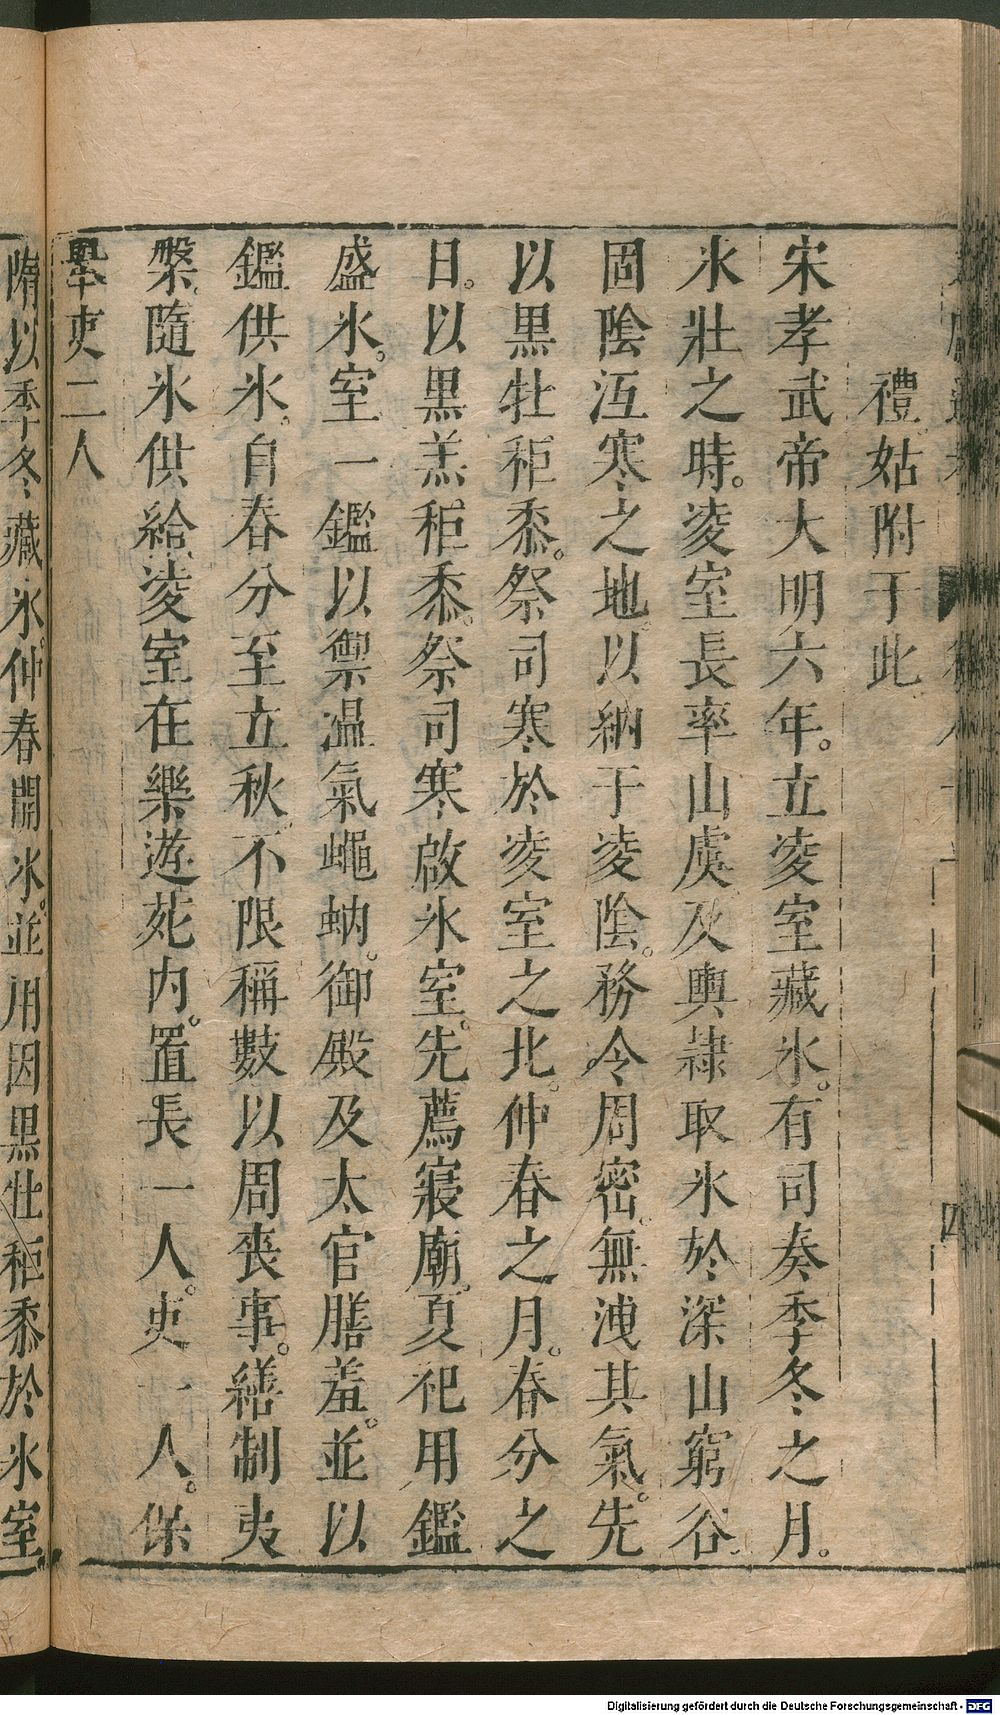 禮姑附于此
宋孝武帝大明六年。立凌室藏氷。有司奏季冬之月。
氷壯之時。凌室長率山虞及輿隷取氷於深山窮谷。
固陰沍寒之地。以納于凌陰。務令周密。無洩其氣。先
以黒牡秬黍。祭司寒於凌室之北。仲春之月。春分之
日。以黒羔秬黍。祭司寒啟氷室。先薦寢廟。夏祀用鑑
盛氷。室一鑑以禦温氣蠅蚋。御殿及太官膳羞。並以
鑑供氷。自春分至立秋。不限稱數以周喪事。繕制夷
槃。隨氷供給。凌室在樂遊苑内。置長一人。吏一人。保
舉吏二人
隋以季冬藏氷。仲春開氷。並用因黒牡秬黍於氷室
四
Digitalisierung gefördert durch die Deutsche Forschungsgemeinschaft - DFG